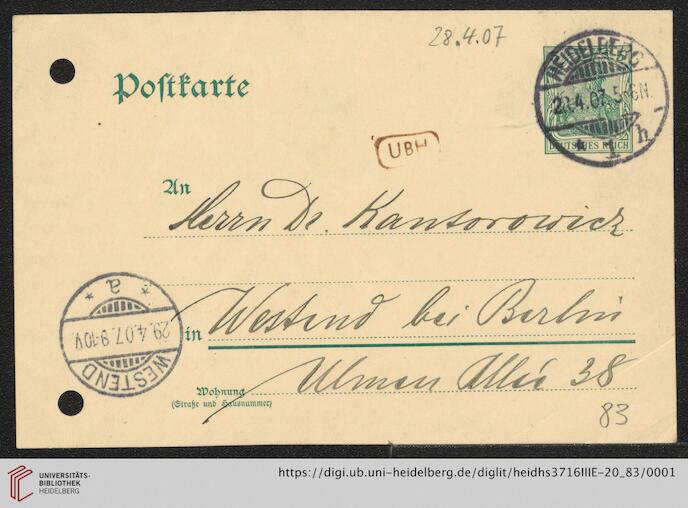 28.4.07
Postkarte
HEIDELBERG
28.4.07. 5-6N.
* 1 h
DEUTSCHES REICH
UBH
An
Herrn Dr. Kantorowicz
in Westend bei Berlin
Ulmen Allée 38
Wohnung
(Straße und Hausnummer)
* a *
29.4.07. 9-10V.
WESTEND
83
UNIVERSITÄTS-
BIBLIOTHEK
HEIDELBERG
https://digi.ub.uni-heidelberg.de/diglit/heidhs3716IIIE-20_83/0001